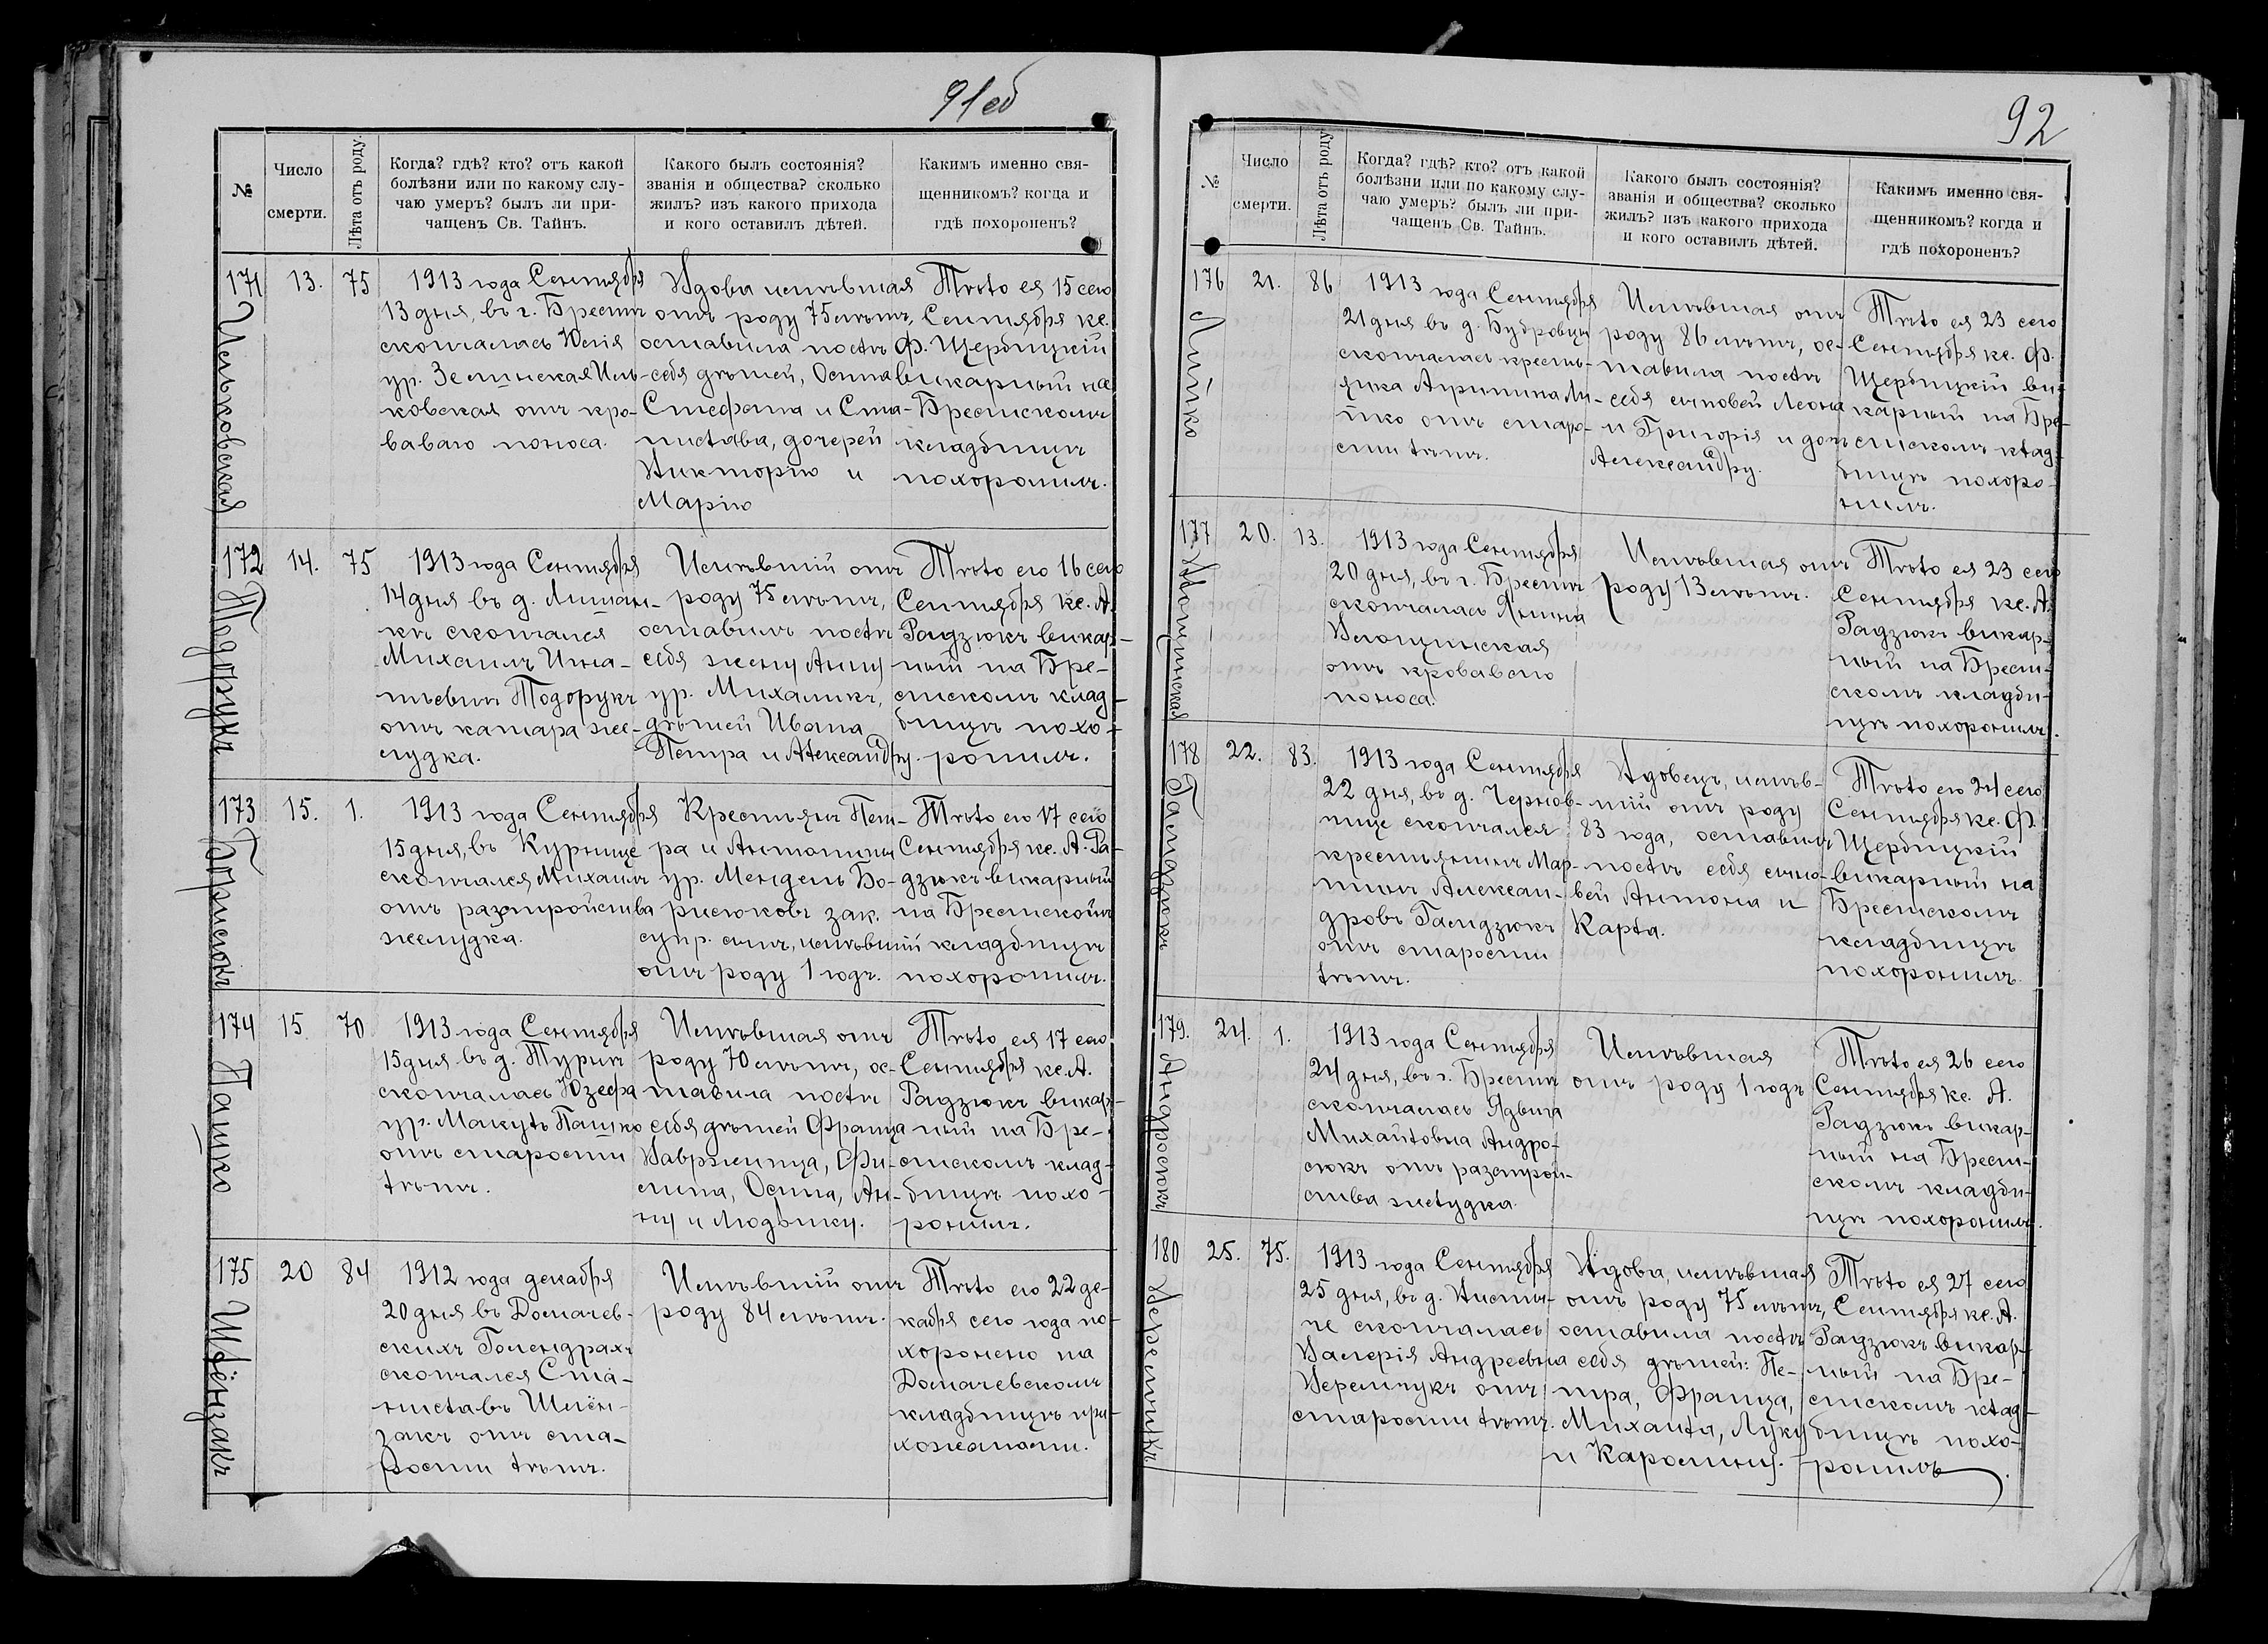 91об
№
Число
смерти.
Лѣта отъ роду.
Когда? гдѣ? кто? отъ какой
болѣзни или по какому слу-
чаю умеръ? былъ ли при-
чащенъ Св. Тайнъ.
Какого былъ состоянія?
званія и общества? сколько
жилъ? изъ какого прихода
и кого оставилъ дѣтей.
Какимъ именно свя-
щенникомъ? когда и
гдѣ похороненъ?
171
Ильковская
13.
75
1913 года Сентября
13 дня, въ г. Брестѣ
скончалась Юлія
ур. Зелинская Иль-
ковская отъ кро-
ваваго поноса.
Вдова имѣвшая
отъ роду 75 лѣтъ,
оставила послѣ
себя дѣтей, Осипа
Стефана и Ста-
нислава, дочерей
Викторію и
Марію
Тѣло ея 15 сего
Сентября кс.
Ф. Щербицкій
викарный на
Брестскомъ
кладбищѣ
похоронилъ.
172
Тодорукъ
14.
75
1913 года Сентября
14 дня въ д. Лышан-
кѣ скончался
Михаилъ Игна-
тьевичъ Тодорукъ
отъ катара же-
лудка.
Имѣвшій отъ
роду 75 лѣтъ,
оставилъ послѣ
себя жену Анну
ур. Михаликъ,
дѣтей Ивана
Петра и Александру.
Тѣло его 16 сего
Сентября кс. А.
Радзюкъ викар-
ный на Бре-
стскомъ клад-
бищѣ похо-
ронилъ.
173
Борисюкъ
15.
1.
1913 года Сентября
15 дня, въ Курнице
скончался Михаилъ
отъ разстройства
желудка.
Крестьянъ Пет-
ра и Антонины
ур. Мендель Бо-
рисюковъ зак.
супр. сынъ, имѣвшій
отъ роду 1 годъ.
Тѣло его 17 сего
Сентября кс. А. Ра-
дзюкъ викарный
на Брестскомъ
кладбищѣ
похоронилъ.
174
Пашко
15
70
1913 года Сентября
15 дня въ д. Турнѣ
скончалась Юзефа
ур. Макуть Пашко
отъ старости
лѣтъ.
Имѣвшая отъ
роду 70 лѣтъ, ос-
тавила послѣ
себя дѣтей Франца
Вавржинца, Фи-
липа, Осипа, Ан-
ну и Людвику.
Тѣло ея 17 сего
Сентября кс. А.
Радзюкъ викар-
ный на Бре-
стскомъ клад-
бищѣ похо-
ронилъ.
175
Шлёнзакъ
20
84
1912 года декабря
20 дня въ Домачев-
скихъ Голендрахъ
скончался Ста-
ниславъ Шлён-
закъ отъ ста-
рости лѣтъ.
Имѣвшій отъ
роду 84 лѣтъ.
Тѣло его 22 де-
кабря сего года по-
хоронено на
Домачевскомъ
кладбищѣ при-
хожанами.
92
№
Число
смерти.
Лѣта отъ роду
Когда? гдѣ? кто? отъ какой
болѣзни или по какому слу-
чаю умеръ? былъ ли при-
чащенъ Св. Тайнъ.
Какого былъ состоянія?
званія и общества? сколько
жилъ? изъ какого прихода
и кого оставилъ дѣтей.
Какимъ именно свя-
щенникомъ? когда и
гдѣ похороненъ?
176
Лийко
21.
86
1913 года Сентября
21 дня въ д. Бубровцы
скончалась кресть-
янка Агрипина Ли-
йко отъ старо-
сти лѣтъ.
Имѣвшая отъ
роду 86 лѣтъ, ос-
тавила послѣ
себя сыновей Леона
и Григорія и дочь
Александру.
Тѣло ея 23 сего
Сентября кс. Ф.
Щербицкій ви-
карный на Бре-
стскомъ клад-
бищѣ похоро-
нилъ.
177
Велощинская
20.
13.
1913 года Сентября
20 дня, въ г. Брестѣ
скончалась Янина
Велощинская
отъ кроваваго
поноса.
Имѣвшая отъ
роду 13 лѣтъ.
Тѣло ея 23 сего
Сентября кс. А.
Радзюкъ викар-
ный на Брест-
скомъ кладби-
щѣ похоронилъ.
178
Гамдзюкъ
22.
83.
1913 года Сентября
22 дня, въ д. Чернов-
чице скончался
крестьянинъ Мар-
тинъ Алексан-
дровъ Гамдзюкъ
отъ старости
лѣтъ.
Вдовецъ, имѣв-
шій отъ роду
83 года, оставилъ
послѣ себя сыно-
вей Антона и
Карла.
Тѣло его 24 сего
Сентября кс. Ф.
Щербицкій
викарный на
Брестскомъ
кладбищѣ
похоронилъ.
179.
Андросюкъ
24.
1.
1913 года Сентября
24 дня, въ г. Брестѣ
скончалась Ядвига
Михайловна Андро-
сюкъ отъ разстрой-
ства желудка.
Имѣвшая
отъ роду 1 годъ
Тѣло ея 26 сего
Сентября кс. А.
Радзюкъ викар-
ный на Брест-
скомъ кладби-
щѣ похоронилъ.
180
Веремчукъ
25.
75.
1913 года Сентября
25 дня, въ д. Вистич-
че скончалась
Валерія Андреевна
Веремчукъ отъ
старости лѣтъ.
Вдова, имѣвшая
отъ роду 75 лѣтъ,
оставила послѣ
себя дѣтей: Пе-
тра, Франца,
Михаила, Луку
и Каролину.
Тѣло ея 27 сего
Сентября кс. А.
Радзюкъ викар-
ный на Бре-
стскомъ клад-
бищѣ похо-
ронилъ.